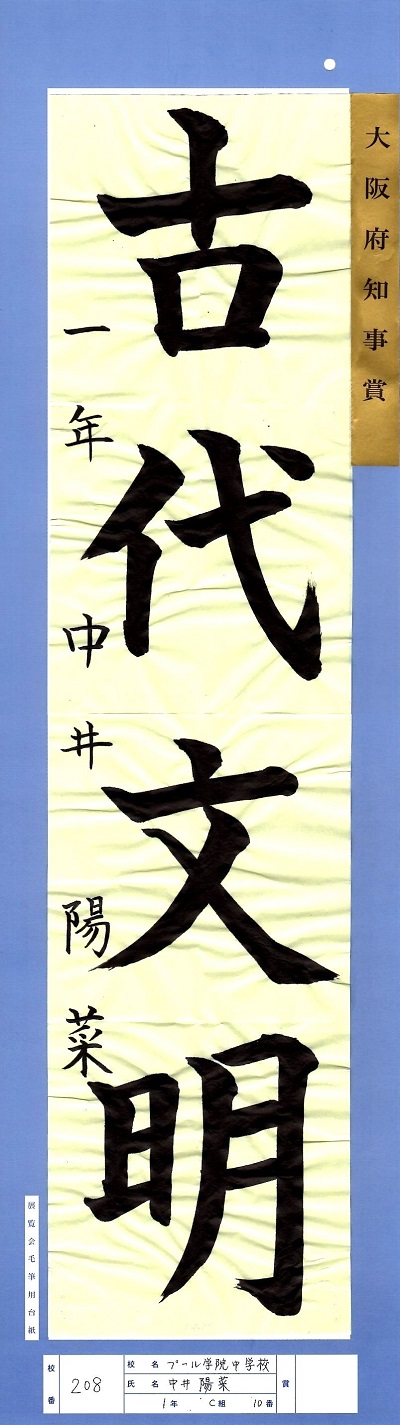 大阪府知事賞
古代文明
一年 中井 陽菜
展覧会毛筆用台紙
校番 208
校名 プール学院中学校
氏名 中井 陽菜
1年 C組 10番
賞